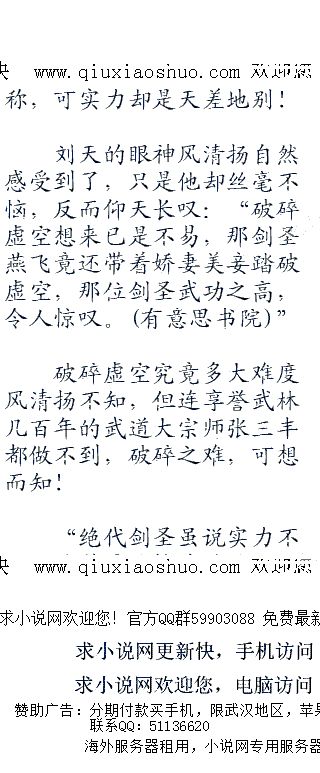 快 www.qiuxiaoshuo.com 欢迎您
称，可实力却是天差地别！
刘天的眼神风清扬自然
感受到了，只是他却丝毫不
恼，反而仰天长叹：“破碎
虚空想来已是不易，那剑圣
燕飞竟还带着娇妻美妾踏破
虚空，那位剑圣武功之高，
令人惊叹。(有意思书院)”
破碎虚空究竟多大难度
风清扬不知，但连享誉武林
几百年的武道大宗师张三丰
都做不到，破碎之难，可想
而知！
“绝代剑圣虽说实力不
快 www.qiuxiaoshuo.com 欢迎您
求小说网欢迎您! 官方QQ群59903088 免费最新
求小说网更新快，手机访问
求小说网欢迎您，电脑访问
赞助广告：分期付款买手机，限武汉地区，苹果
联系QQ：51136620
海外服务器租用，小说网专用服务器